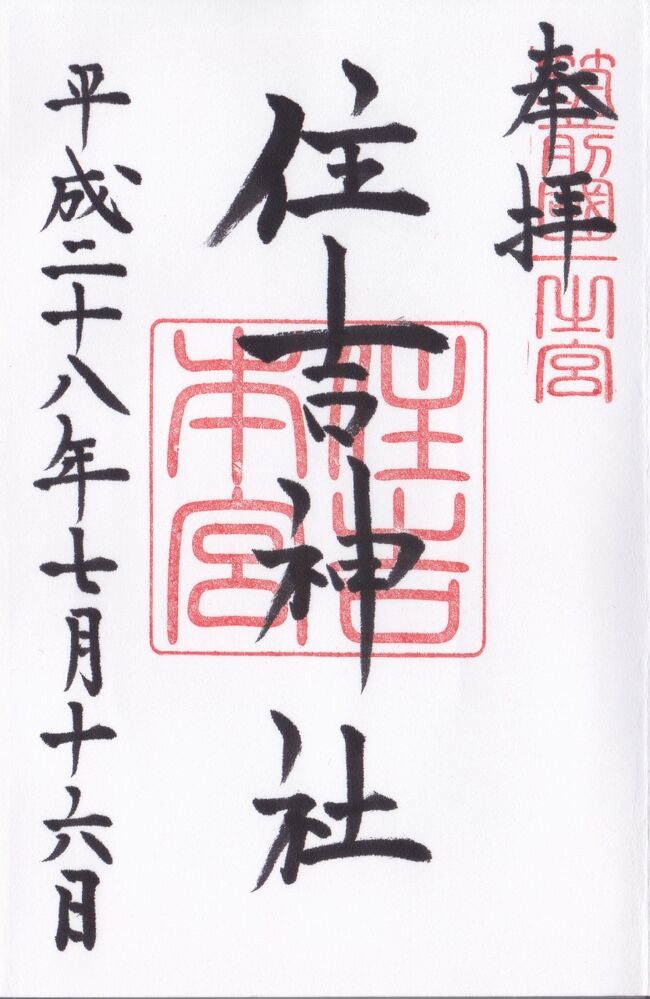 奉拝
筑前國一之宮
住吉神社
住吉本宮
平成二十八年七月十六日